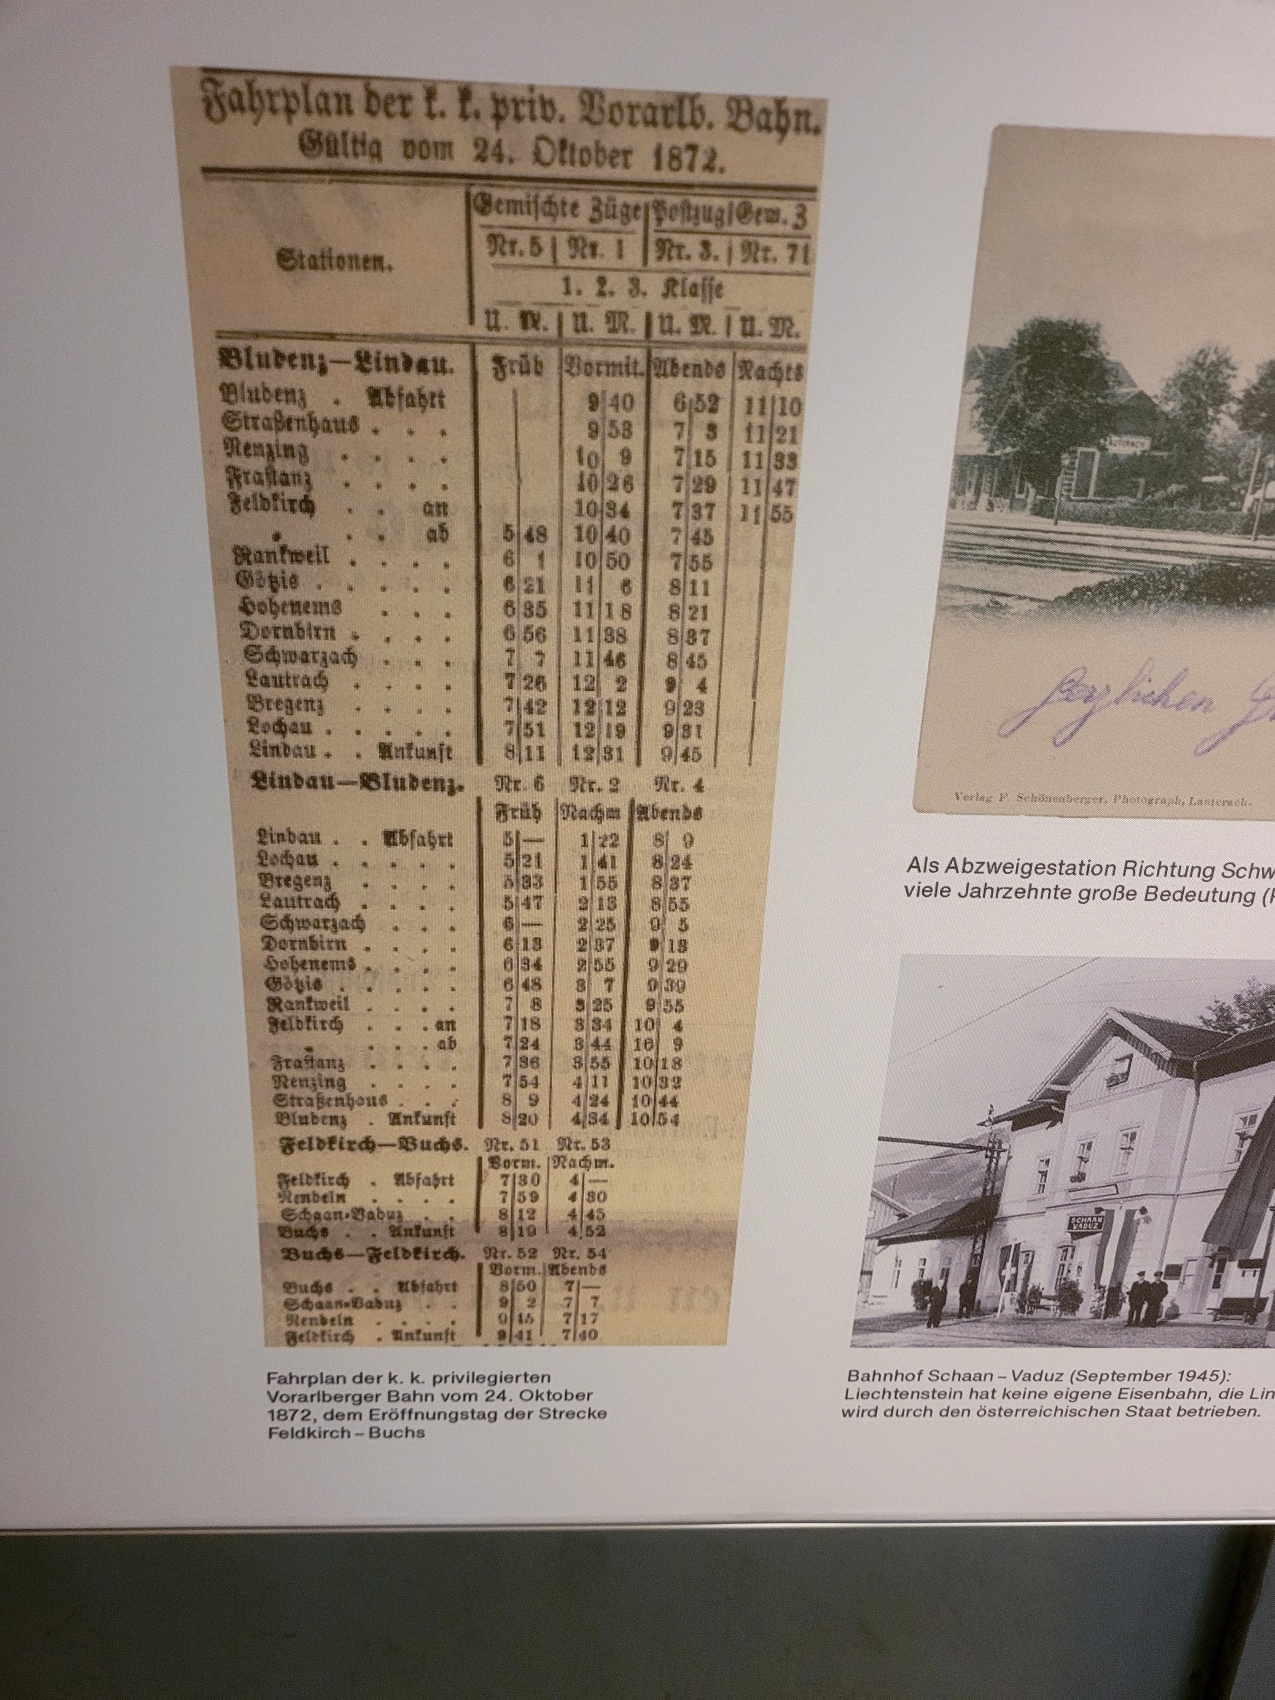 Fahrplan der k. k. priv. Vorarlb. Bahn.
Gültig vom 24. Oktober 1872.
Stationen. Gemischte Züge Postzug Gem. Z
Nr. 5 Nr. 1 Nr. 3. Nr. 71
1. 2. 3. Klasse
U. M. U. M. U. M. U. M.
Bludenz—Lindau. Früh Vormit. Abends Nachts
Bludenz . Abfahrt 9 40 6 52 11 10
Straßenhaus . . . 9 53 7 3 11 21
Nenzing . . . . 10 9 7 15 11 33
Frastanz . . . . 10 26 7 29 11 47
Feldkirch . . an 10 34 7 37 11 55
" . . ab 5 48 10 40 7 45
Rankweil . . . . 6 1 10 50 7 55
Götzis . . . . . 6 21 11 6 8 11
Hohenems . . . 6 35 11 18 8 21
Dornbirn . . . . 6 56 11 38 8 37
Schwarzach . . . 7 7 11 46 8 45
Lautrach . . . . 7 26 12 2 9 4
Bregenz . . . . 7 42 12 12 9 23
Lochau . . . . . 7 51 12 19 9 31
Lindau . . Ankunft 8 11 12 31 9 45
Lindau—Bludenz. Nr. 6 Nr. 2 Nr. 4
Früh Nachm Abends
Lindau . . Abfahrt 5 — 1 22 8 9
Lochau . . . . . 5 21 1 41 8 24
Bregenz . . . . 5 33 1 55 8 37
Lautrach . . . . 5 47 2 13 8 55
Schwarzach . . . 6 — 2 25 9 5
Dornbirn . . . . 6 13 2 37 9 13
Hohenems . . . . 6 34 2 55 9 29
Götzis . . . . . 6 48 3 7 9 39
Rankweil . . . . 7 8 3 25 9 55
Feldkirch . . . an 7 18 3 34 10 4
" . . . ab 7 24 3 44 10 9
Frastanz . . . . 7 36 3 55 10 18
Nenzing . . . . 7 54 4 11 10 32
Straßenhaus . . . 8 9 4 24 10 44
Bludenz . Ankunft 8 20 4 34 10 54
Feldkirch—Buchs. Nr. 51 Nr. 53
Vorm. Nachm.
Feldkirch . Abfahrt 7 30 4 —
Nendeln . . . . 7 59 4 30
Schaan-Vaduz . . 8 12 4 45
Buchs . . Ankunft 8 19 4 52
Buchs—Feldkirch. Nr. 52 Nr. 54
Vorm. Abends
Buchs . . Abfahrt 8 50 7 —
Schaan-Vaduz . . 9 2 7 7
Nendeln . . . . 9 15 7 17
Feldkirch . Ankunft 9 41 7 40
Fahrplan der k. k. privilegierten
Vorarlberger Bahn vom 24. Oktober
1872, dem Eröffnungstag der Strecke
Feldkirch – Buchs
LAUTERACH
Herzlichen
Verlag F. Schönenberger, Photograph, Lauterach.
Als Abzweigestation Richtung
viele Jahrzehnte große Bedeutung
SCHAAN
VADUZ
Bahnhof Schaan – Vaduz (September 1945):
Liechtenstein hat keine eigene Eisenbahn, die
wird durch den österreichischen Staat betrieben.